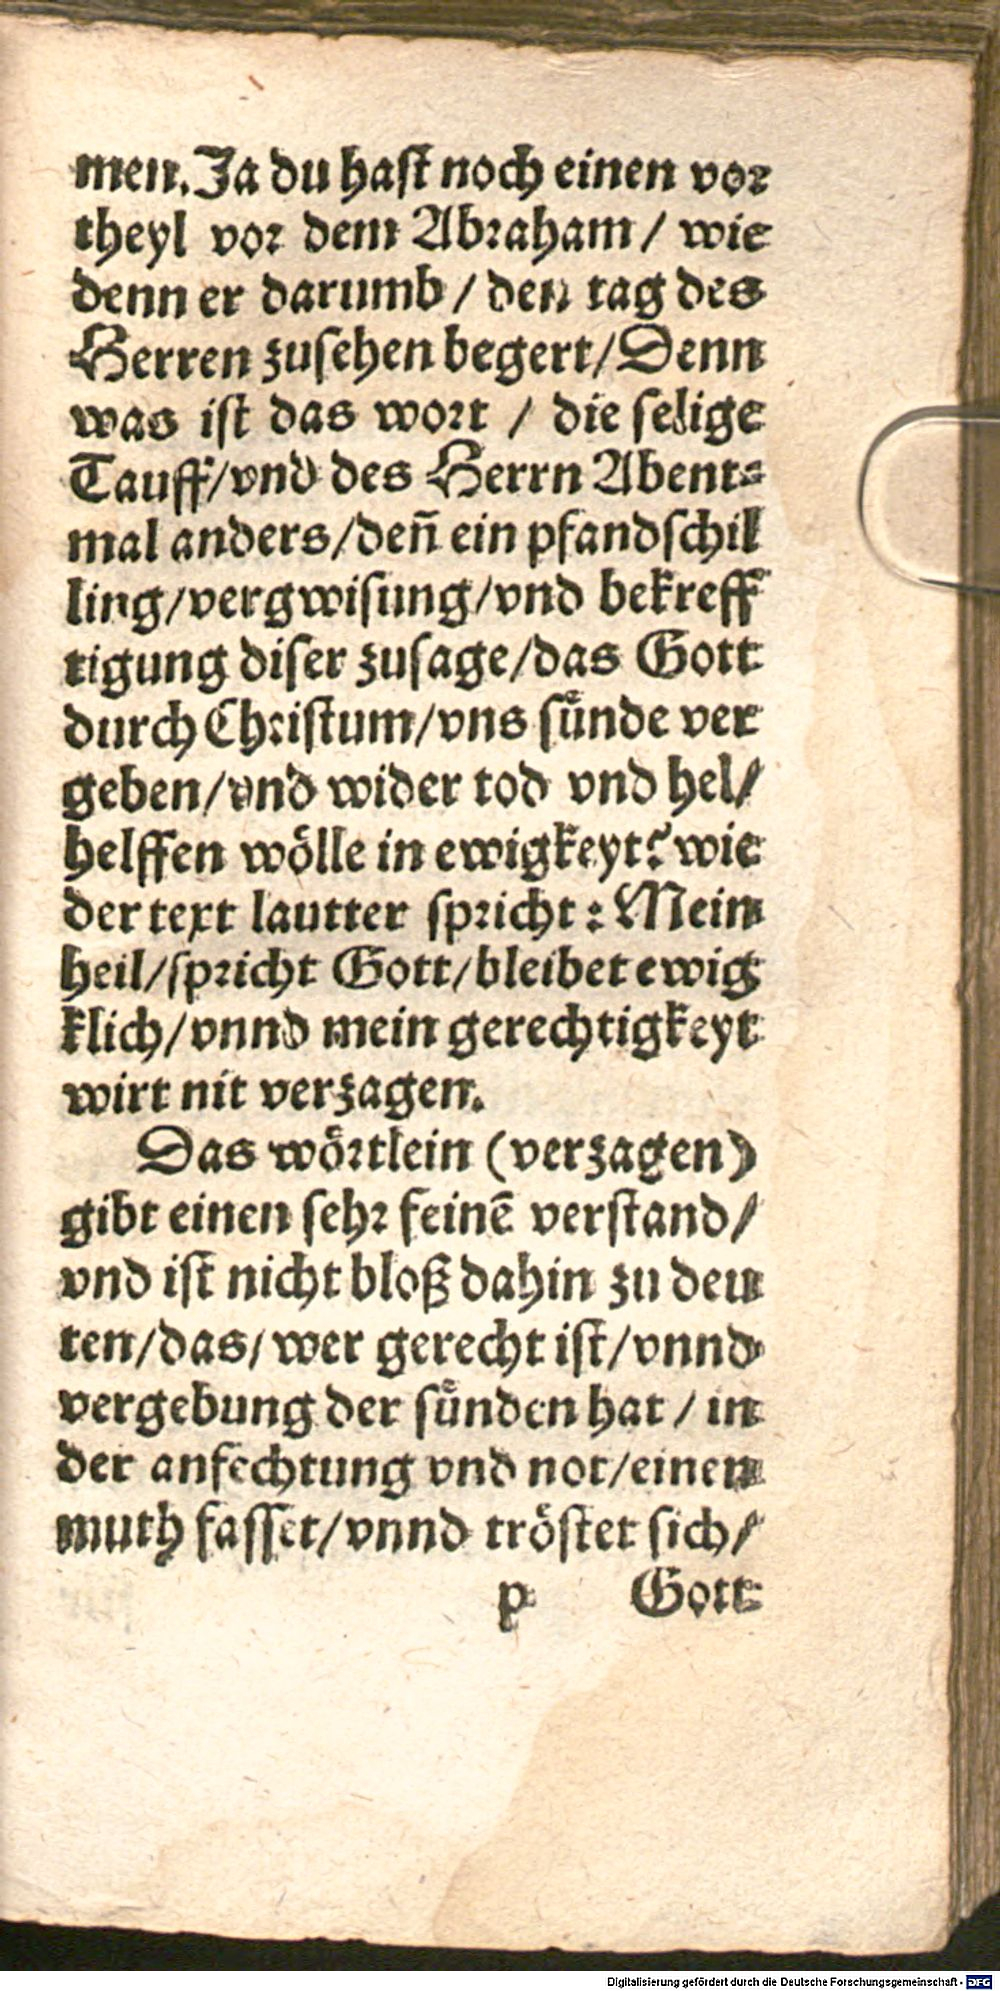 men. Ja du hast noch einen vor
theyl vor dem Abraham / wie
denn er darumb / den tag des
Herren zusehen begert / Denn
was ist das wort / die selige
Tauff / vnd des Herrn Abent⸗
mal anders / deñ ein pfandschil
ling / vergwisung / vnd bekreff
tigung diser zusage / das Gott
durch Christum / vns suͤnde ver
geben / vnd wider tod vnd hel /
helffen woͤlle in ewigkeyt? wie
der text lautter spricht: Mein
heil / spricht Gott / bleibet ewig
klich / vnnd mein gerechtigkeyt
wirt nit verzagen.
Das woͤrtlein (verzagen)
gibt einen sehr feinē verstand /
vnd ist nicht bloß dahin zu deu
ten / das / wer gerecht ist / vnnd
vergebung der suͤnden hat / in
der anfechtung vnd not / einen
muth fasset / vnnd troͤstet sich /
p Gott
Digitalisierung gefördert durch die Deutsche Forschungsgemeinschaft - DFG